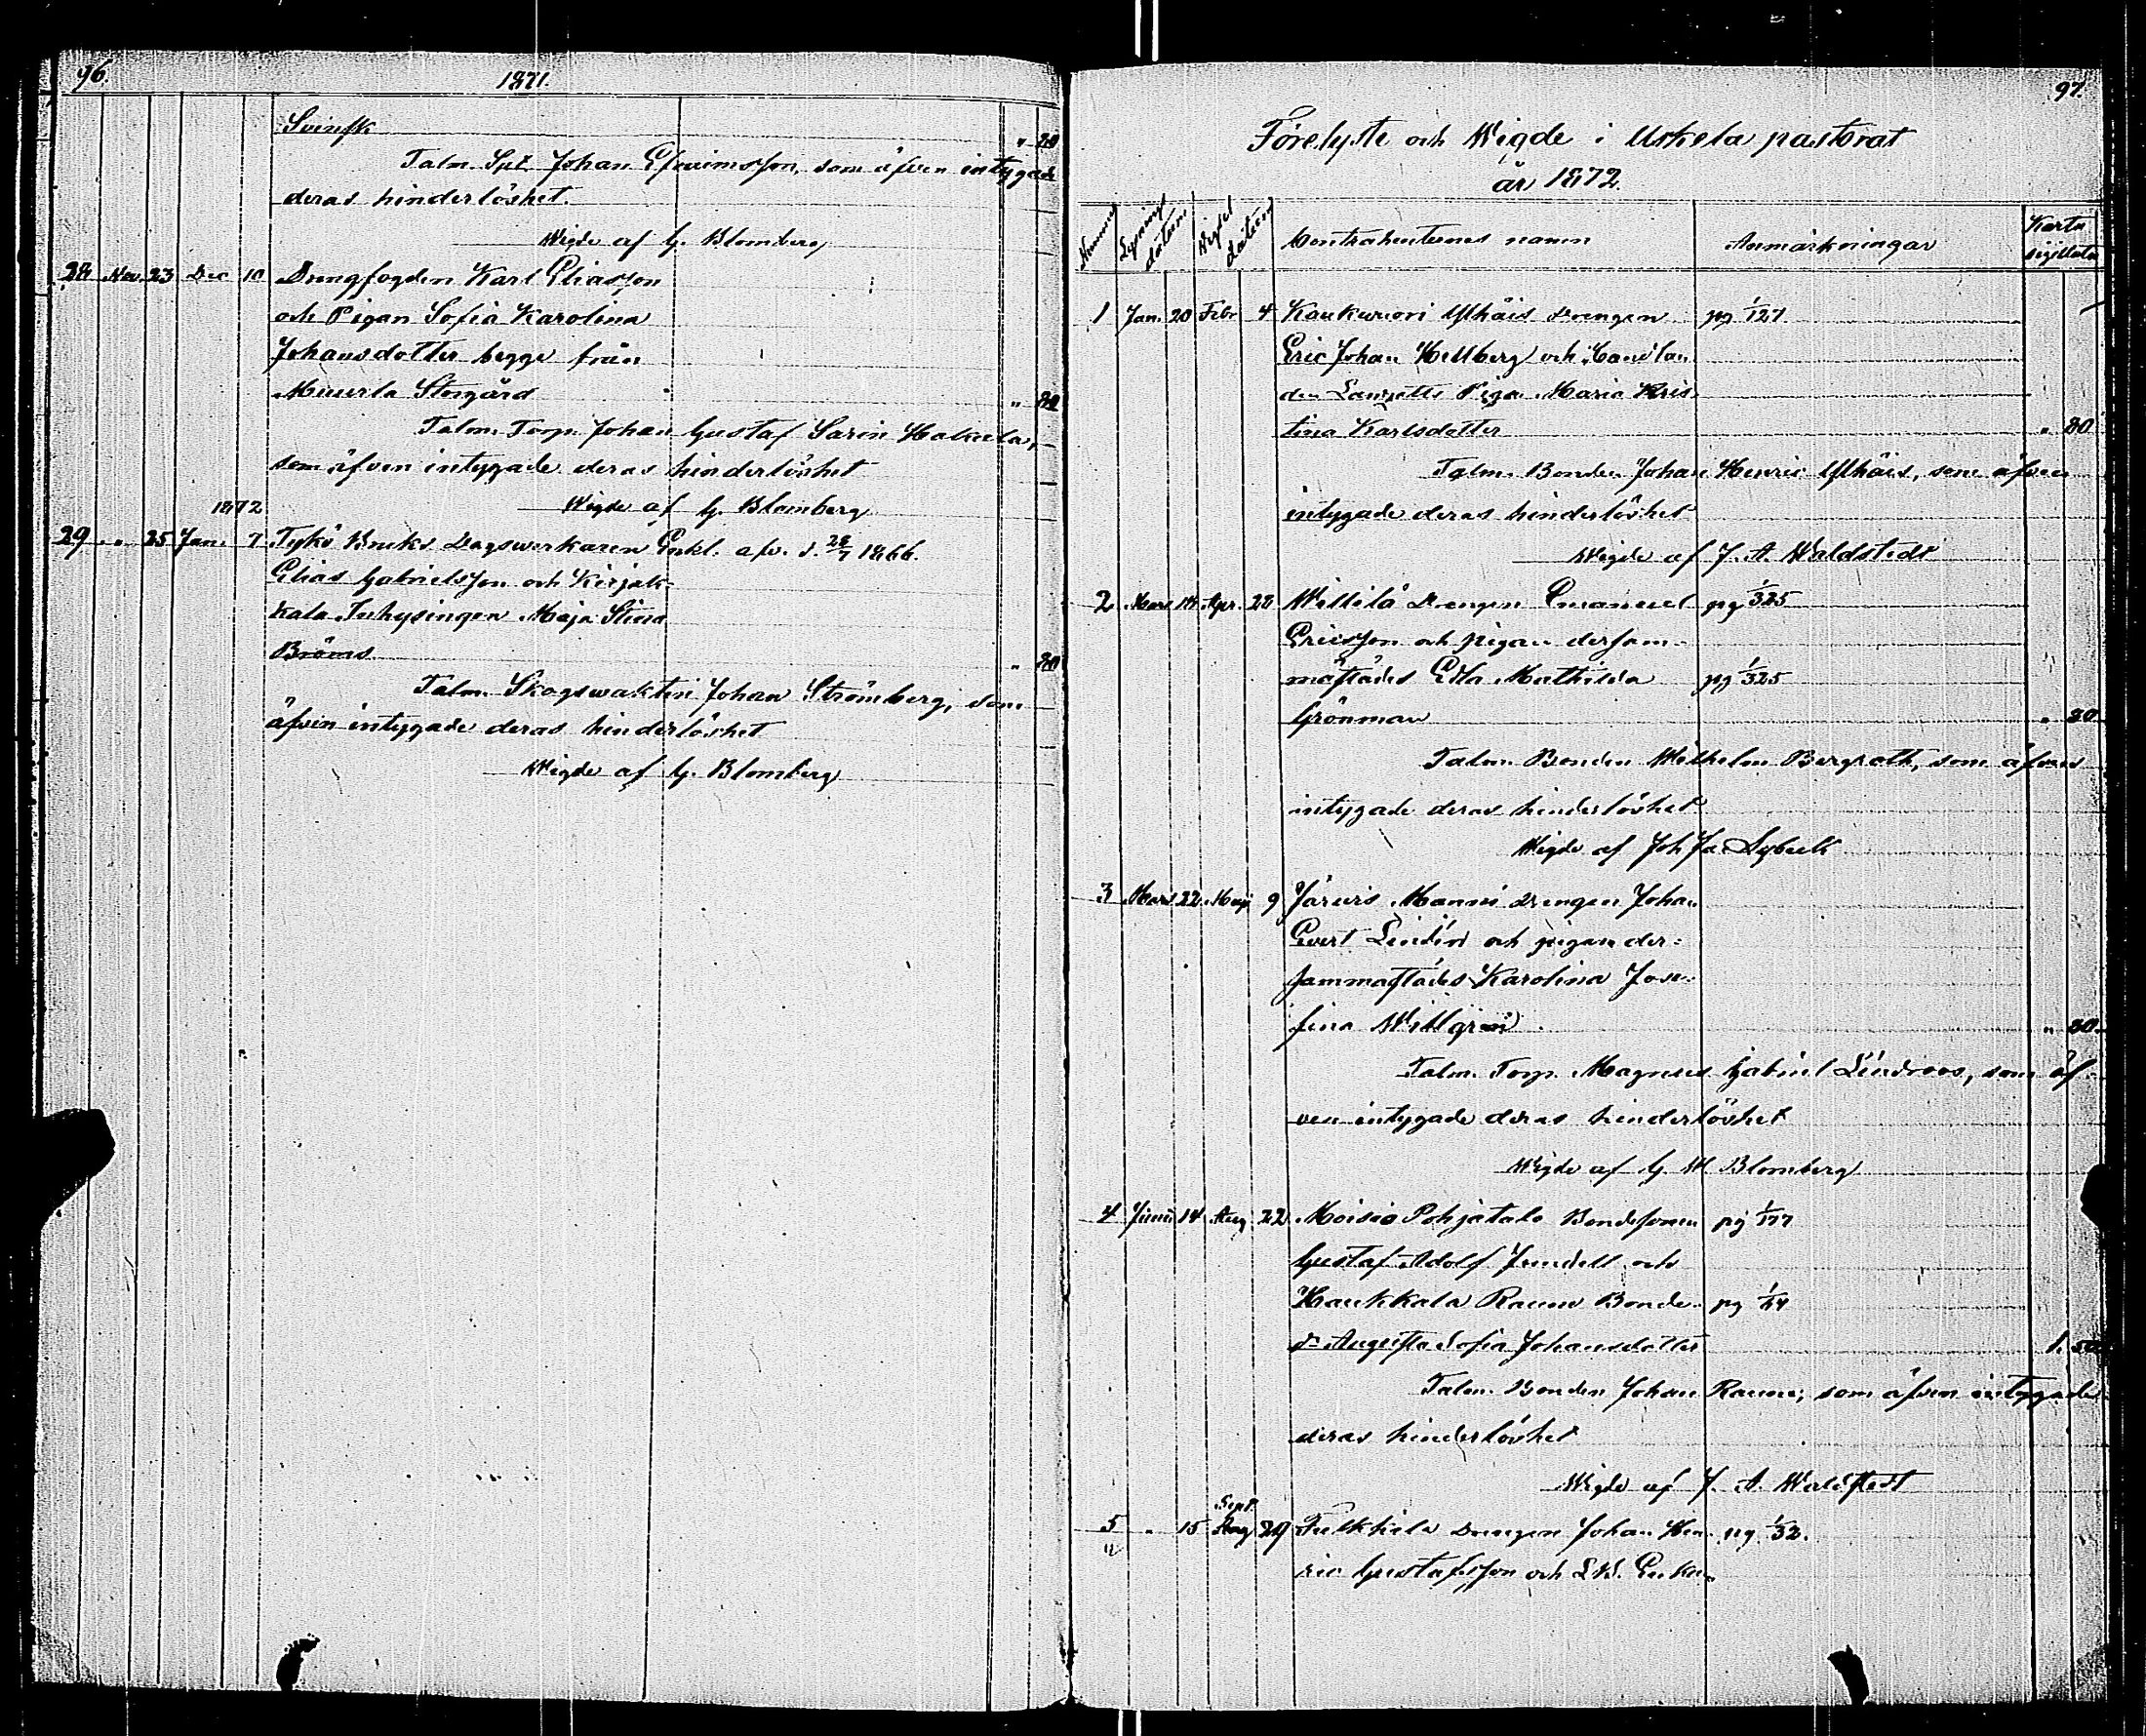 96.
1871.
Svinsk " 80
Talm. Spt. Johan Efraimsson, som äfven intygade
deras hinderlöshet.
Wigde af G. Blomberg
28 Nov. 23 Dec 10 Drengfogden Karl Eliasson
och Pigan Sofia Karolina
Johansdotter begge från
Muurla Storgård " 80
Talm. Torp. Johan Gustaf Sarin Hakula,
som äfven intygade deras hinderlöshet
Wigde af G. Blomberg
1872
29 " 25 Jan. 7 Tykö Bruks Dagswerkaren Enkl. afv. d. 28/7 1866
Elias Gabrielsson och Kirjak-
kala Inhysingen Maja Stina
Bröms " 80
Talm. Skogswakten Johan Strömberg, som
äfven intygade deras hinderlöshet
Wigde af G. Blomberg
97.
Förelyste och Wigde i Uskela pastorat
år 1872.
Nummer Lysnings datum Wigsel datum Contrahenternes namn Anmärkningar Karta sigillata
1 Jan. 20 Febr 4 Kaukvuori Ylhäis Drengen pg 1/127
Eric Johan Hellberg och
den Pigan Maria Kris-
tina Karlsdotter " 80
Talm. Bonden Johan Henric Ylhäis, som äfven
intygade deras hinderlöshet
Wigde af J. A. Waldstedt
2 Mars 14 Apr. 28 Willilä Drengen Emanuel pg 1/325
Ericsson och pigan dersam-
mastädes Edla Mathilda pg 1/325
Grönman " 80
Talm. Bonden Wilhelm Bergroth, som äfven
intygade deras hinderlöshet
Wigde af Joh Ja. Sybeck
3 Mars 22 Maj 9 Järvis Manni Drengen Johan
Evert Lindén och pigan der-
sammastädes Karolina Jose-
fina Willgren " 80.
Talm. Torp. Magnus Gabriel Lindroos, som äf-
ven intygade deras hinderlöshet
Wigde af G. W Blomberg
4 Junii 14 Aug 22 Moisio Pohjatalo Bondesonen pg 1/177
Gustaf Adolf Jundell och
Haukkala Rauno Bonde- pg 1/14
dr Augusta Sofia Johansdotter 1. 50
Talm. Bonden Johan Rauno, som äfven intygade
deras hinderlöshet
Wigde af J. A. Waldstedt
Sept.
5 " 15 Aug 29 Drengen Johan Hen- pg 1/32.
ric Gustafsson och